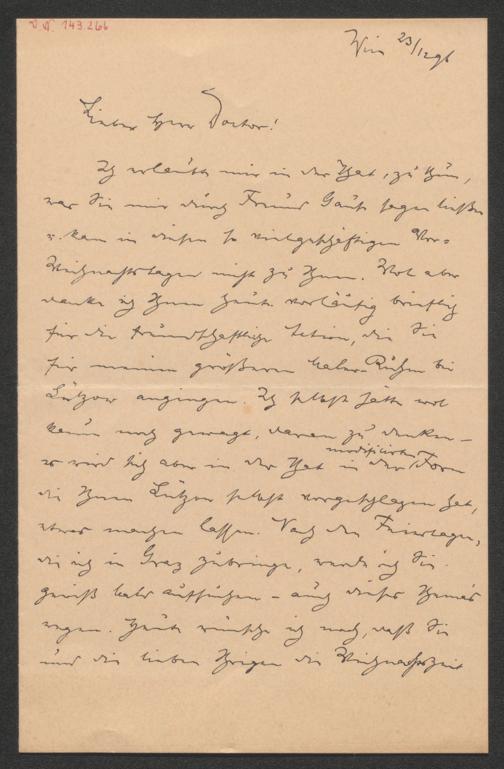 I. N. 143.266
Wien 23/12 96
Lieber Herr Doctor!
Ich erlaubte mir in der That, zu thun,
was Sie mir durch Freund Gänse sagen ließen
u. kam in diesen so vielgeschäftigen Vor-
Weihnachtstagen nicht zu Ihnen. Wol aber
danke ich Ihnen heute vorläufig brieflich
für die freundschaftliche Action, die Sie
für meinen größeren Ruhm bei
Lützow angingen. Ich selbst hätte wol
kaum noch gewagt, daran zu denken –
es wird sich aber in der That in der modificirten Form
die Ihnen Lützow selbst vorgeschlagen hat,
etwas machen lassen. Nach den Feiertagen,
die ich in Graz zubringe, werde ich Sie
gewiß bald aufsuchen – auch dieses Themas
wegen. Heute wünsche ich noch, daß Sie
und die lieben Ihrigen die Weihnachtszeit